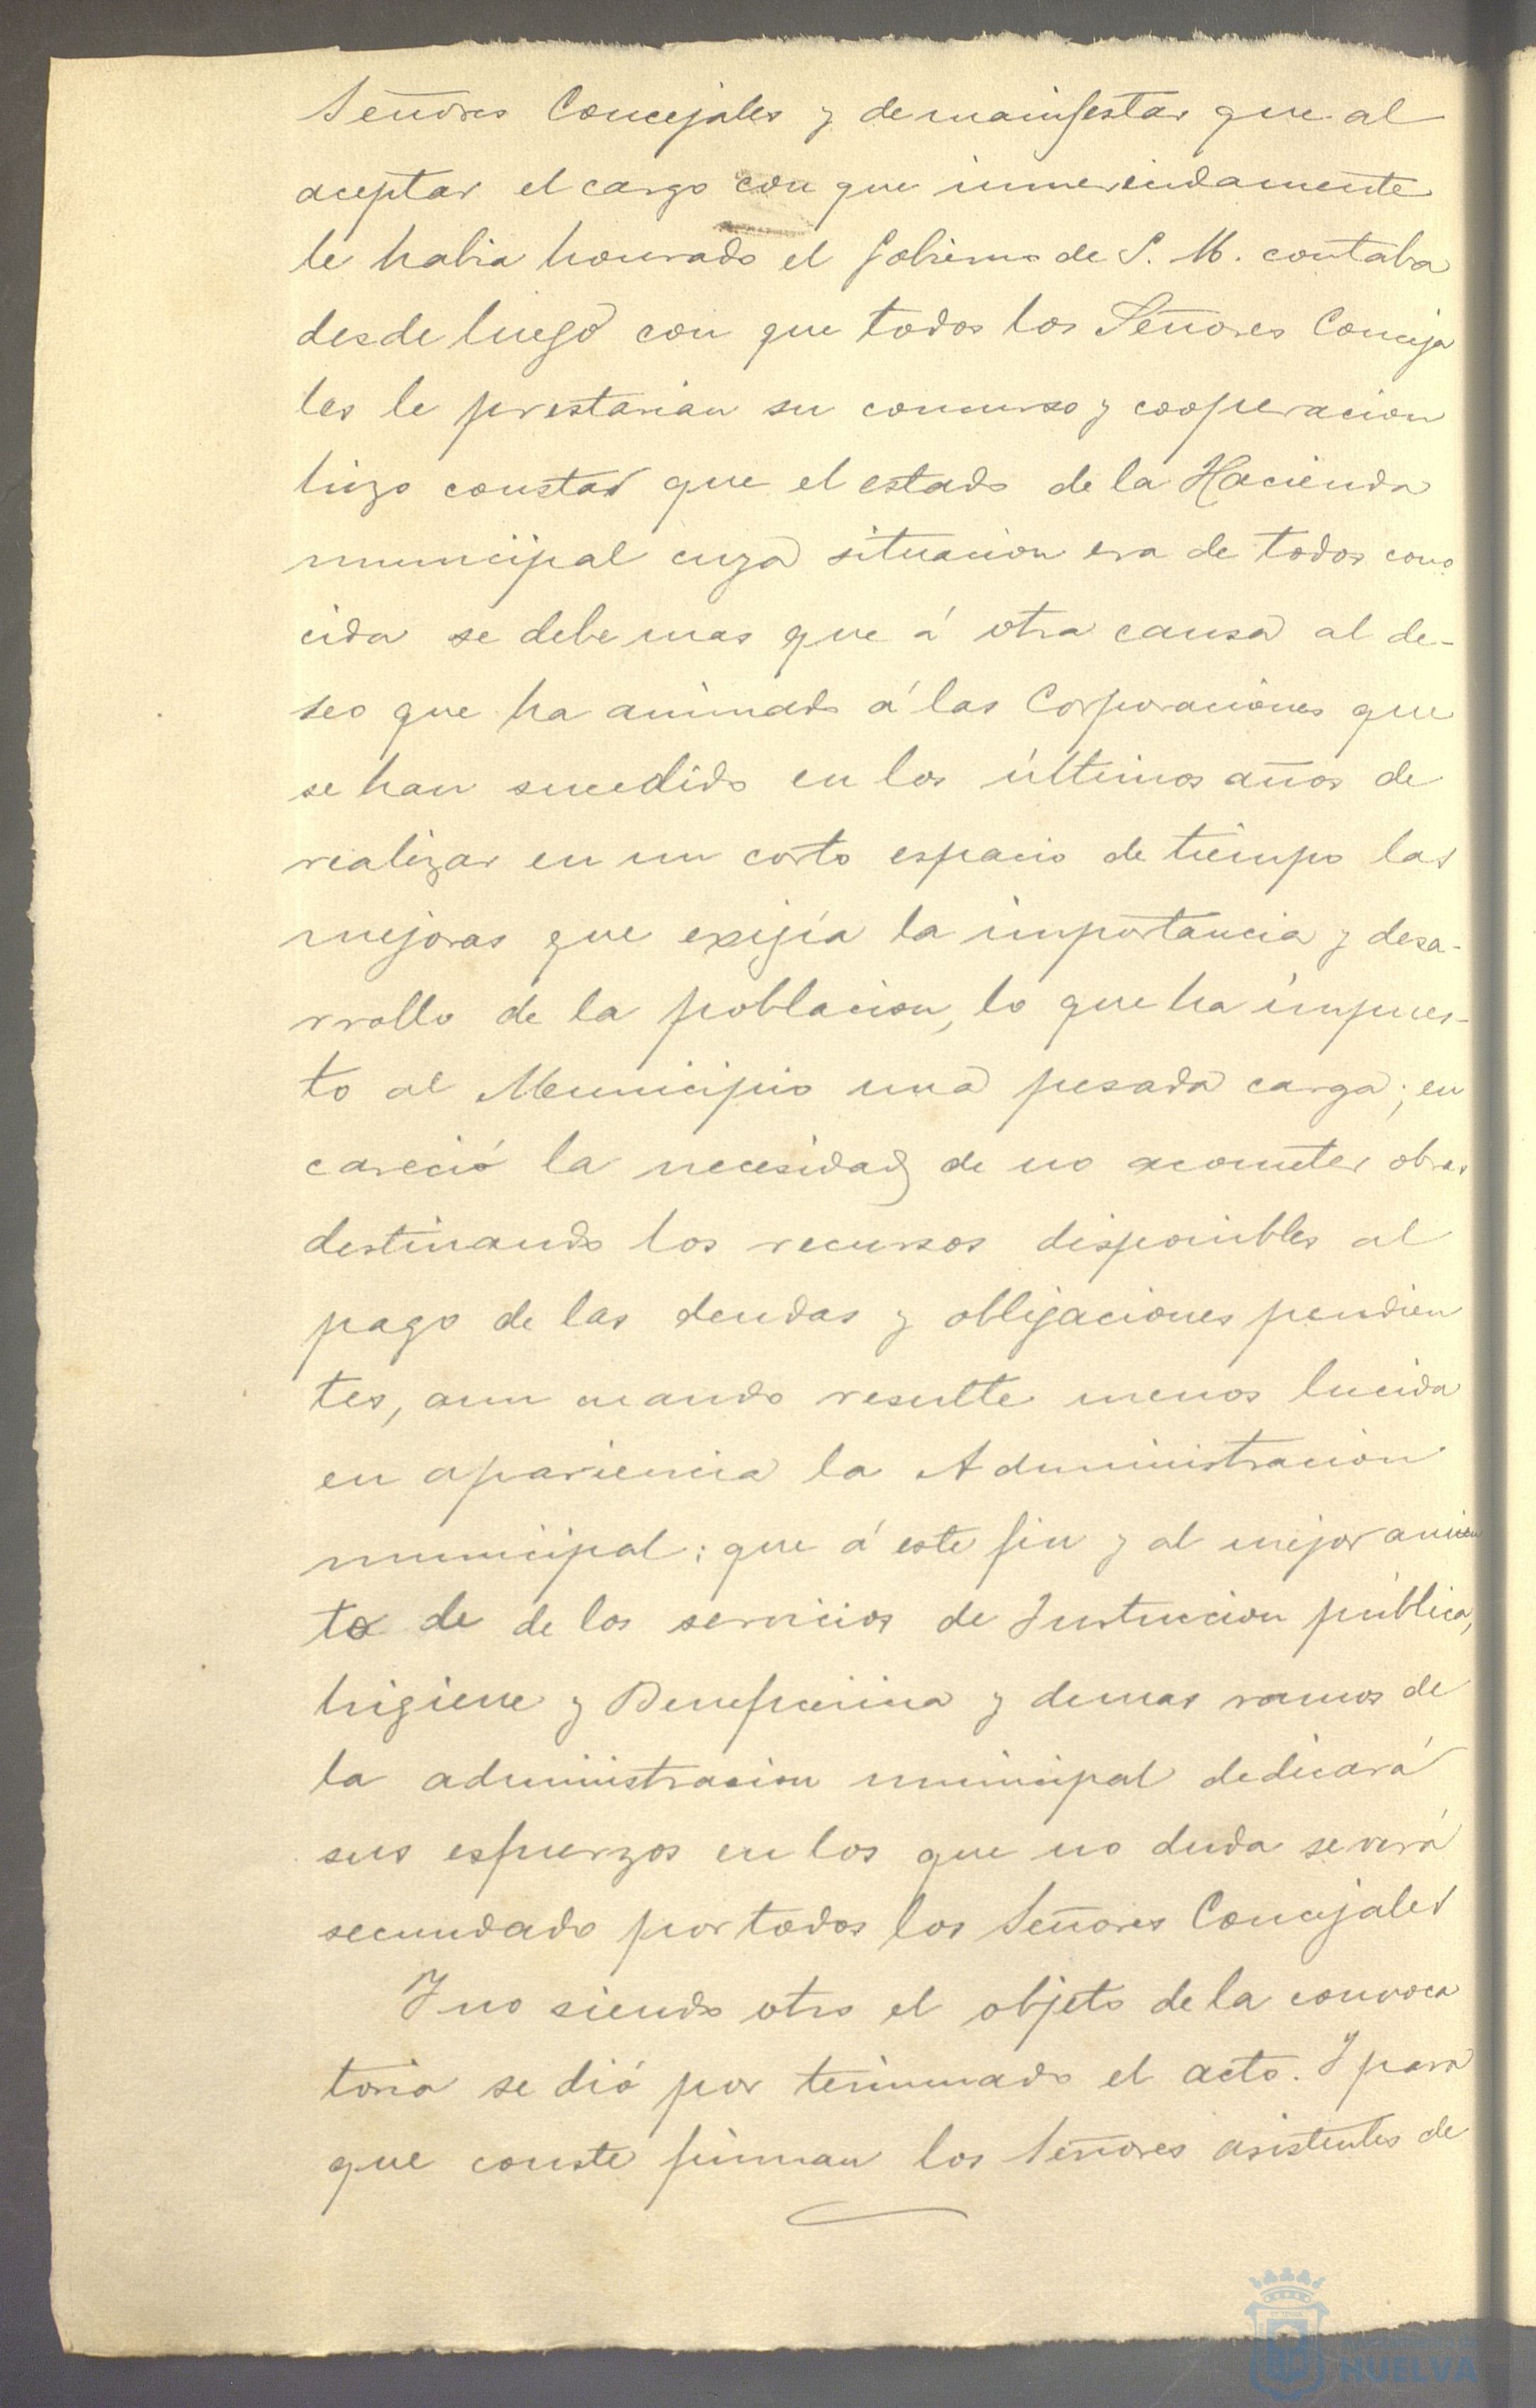 Señores Concejales y de manifestar que al
aceptar el cargo con que inmerecidamente
le habia honrado el Gobierno de S. M. contaba
desde luego con que todos los Señores Conceja
les le prestarian su concurso y cooperacion
hizo constar que el estado de la Hacienda
municipal cuya situacion era de todos cono
cida se debe mas que á otra causa al de-
seo que ha animado á las Corporaciones que
se han sucedido en los últimos años de
realizar en un corto espacio de tiempo las
mejoras que exijía la importancia y desa-
rrollo de la poblacion, lo que ha impues-
to al Municipio una pesada carga; en
careció la necesidad de no acometer obras
destinando los recursos disponibles al
pago de las deudas y obligaciones pendien
tes, aun cuando resulte menos lucida
en apariencia la Administracion
municipal: que á este fin y al mejoramien
to de de los servicios de Instruccion pública,
higiene y Beneficencia y demas ramos de
la administracion municipal dedicará
sus esfuerzos en los que no duda se verá
secundado por todos los Señores Concejales
Y no siendo otro el objeto de la convoca
toria se dió por terminado el acto. Y para
que conste firman los Señores asistentes de
HUELVA